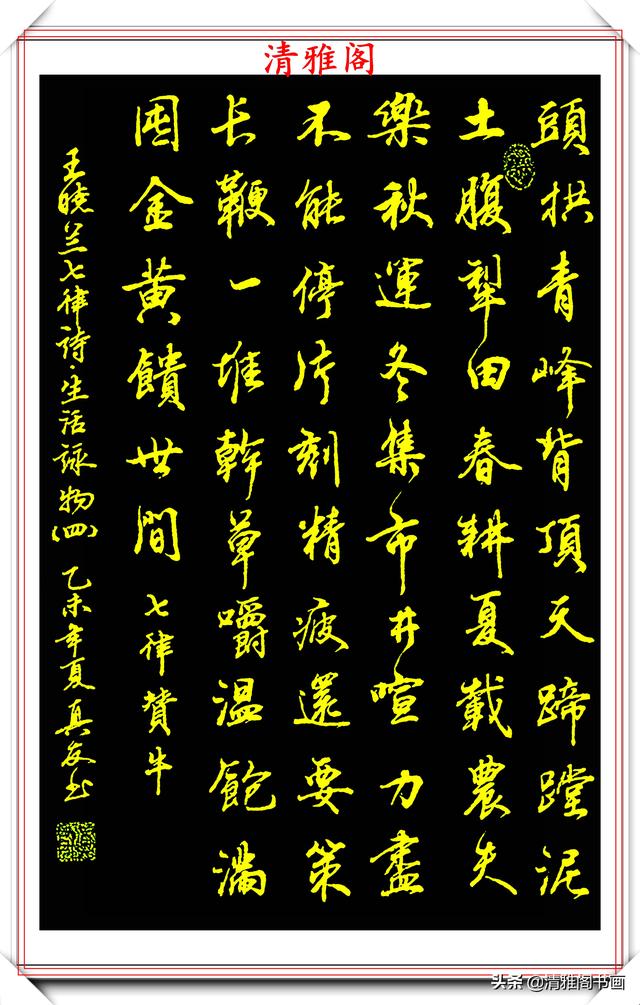 清雅阁
頭拱青峰背頂天蹄蹚泥
土腹犁田春耕夏載農夫
樂秋運冬集市井喧力盡
不能停片刻精疲還要策
长鞭一堆幹草嚼溫飽满
囤金黄饋世間 七律贊牛
王曉兰七律詩·生活詠物(四) 乙未年夏真友书
头条 @清雅阁书画